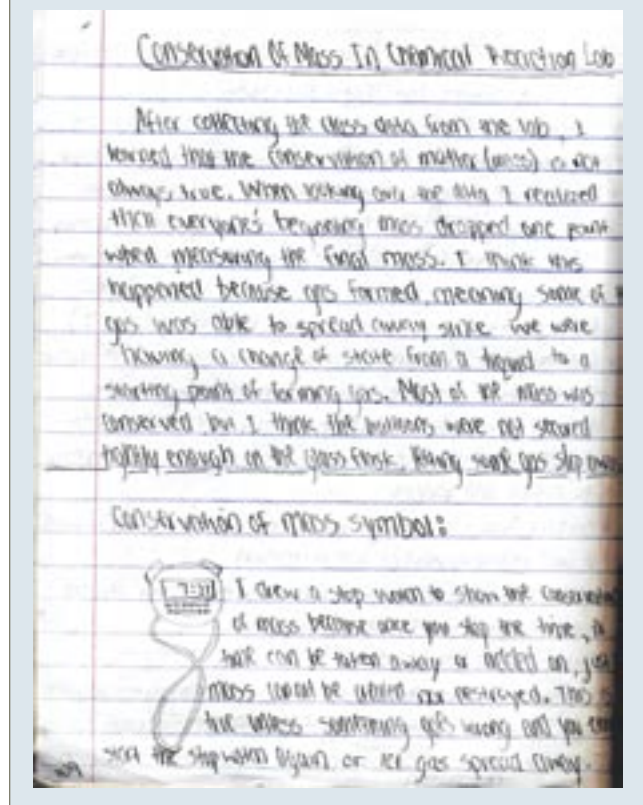 Conservation Of Mass In Chemical Reaction Lab
After collecting the class data from the lab, I
learned that the conservation of matter (mass) is not
always true. When looking over the data I realized
that everyone's beginning mass dropped one point
when measuring the final mass. I think this
happened because gas formed, meaning some of
gas was able to spread away since we were
having a change of state from a liquid to a
starting point of forming gas. Most of the mass was
conserved but I think the balloons were not secured
tightly enough on the glass flask, some gas slip
Conservation of mass symbol:
I drew a stop watch to show the
of mass because once you stop the time,
can be taken away or added on, just
mass nor destroyed. This is
true unless something goes wrong and you
start the stopwatch again or let gas spread away.